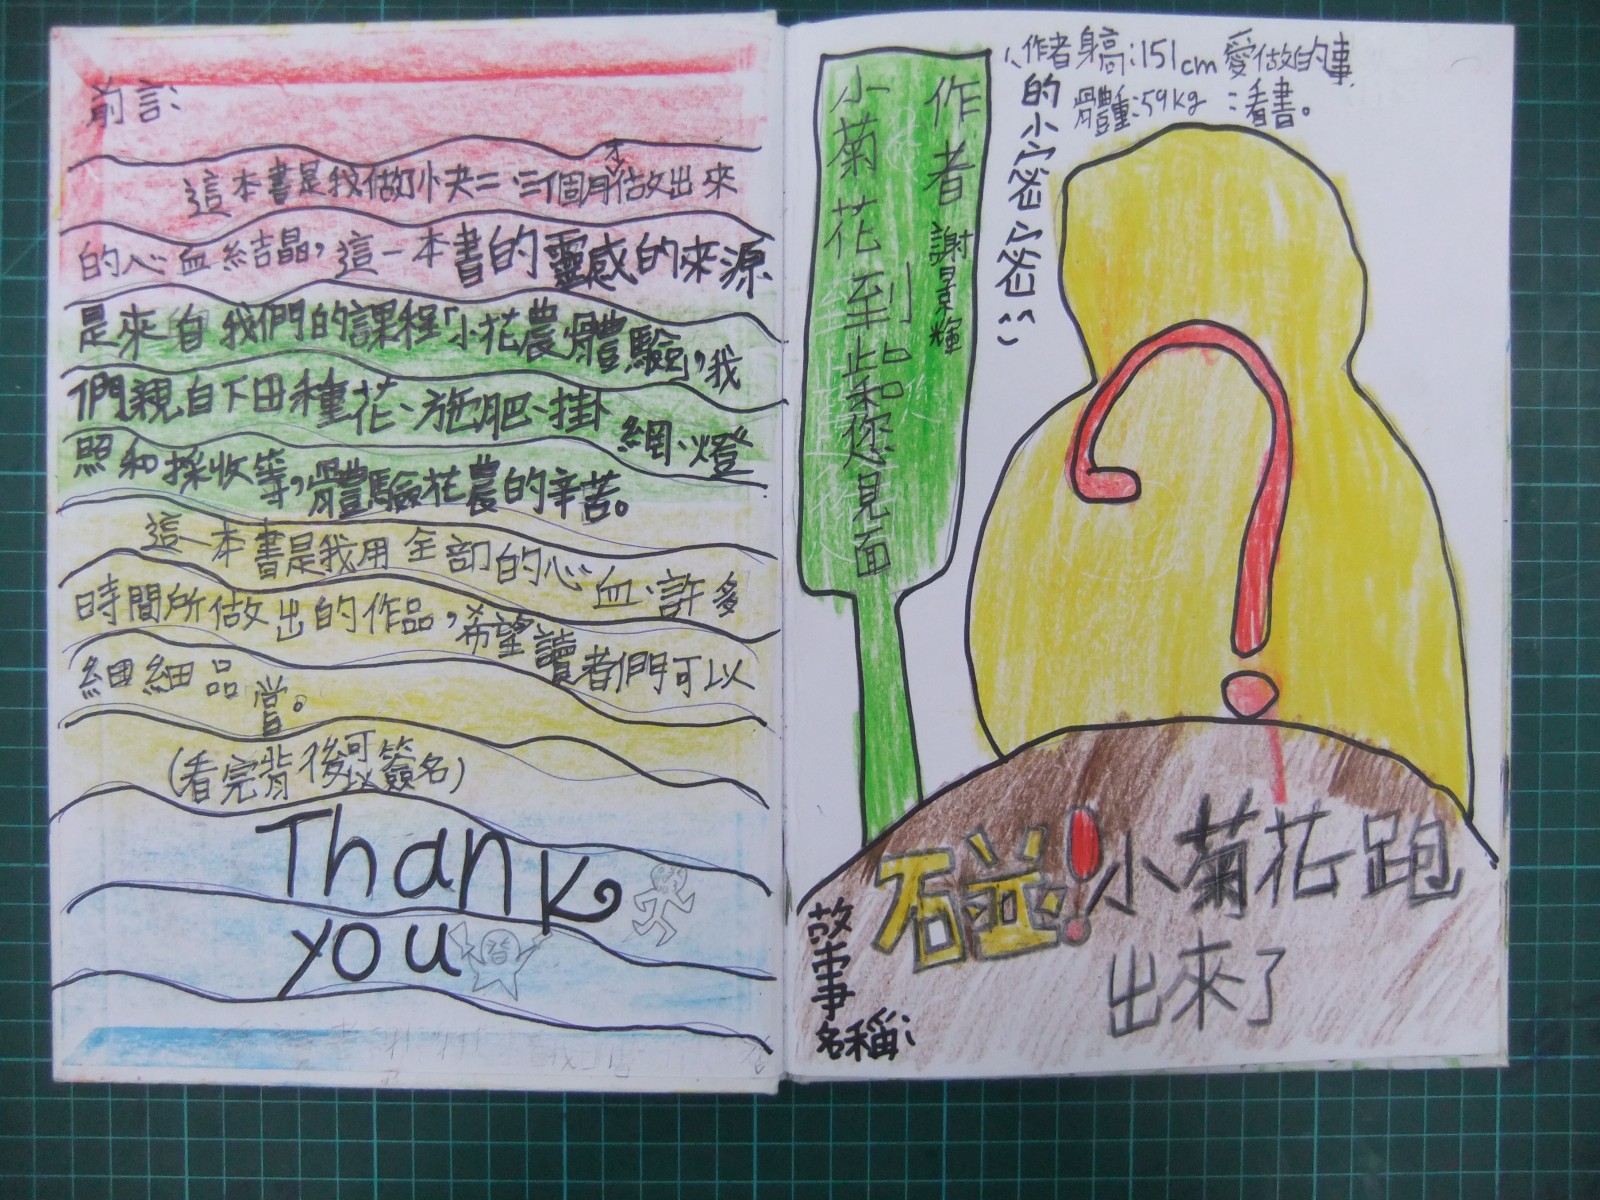 前言:
這本書是我做了快二、三個月才做出來
的心血結晶,這一本書的靈感的來源
是來自我們的課程「小花農體驗」,我
們親自下田種花、施肥、掛網、燈
照和採收等,體驗花農的辛苦。
這一本書是我用全部的心血、許多
時間所做出的作品,希望讀者們可以
細細品嘗。
(看完背後可以簽名)
Thank
you
作者 謝景輝
小菊花到此和您見面
作者身高:151cm 愛做的事
體重:59kg :看書。
的小密密
故事名稱:
碰!小菊花跑
出來了